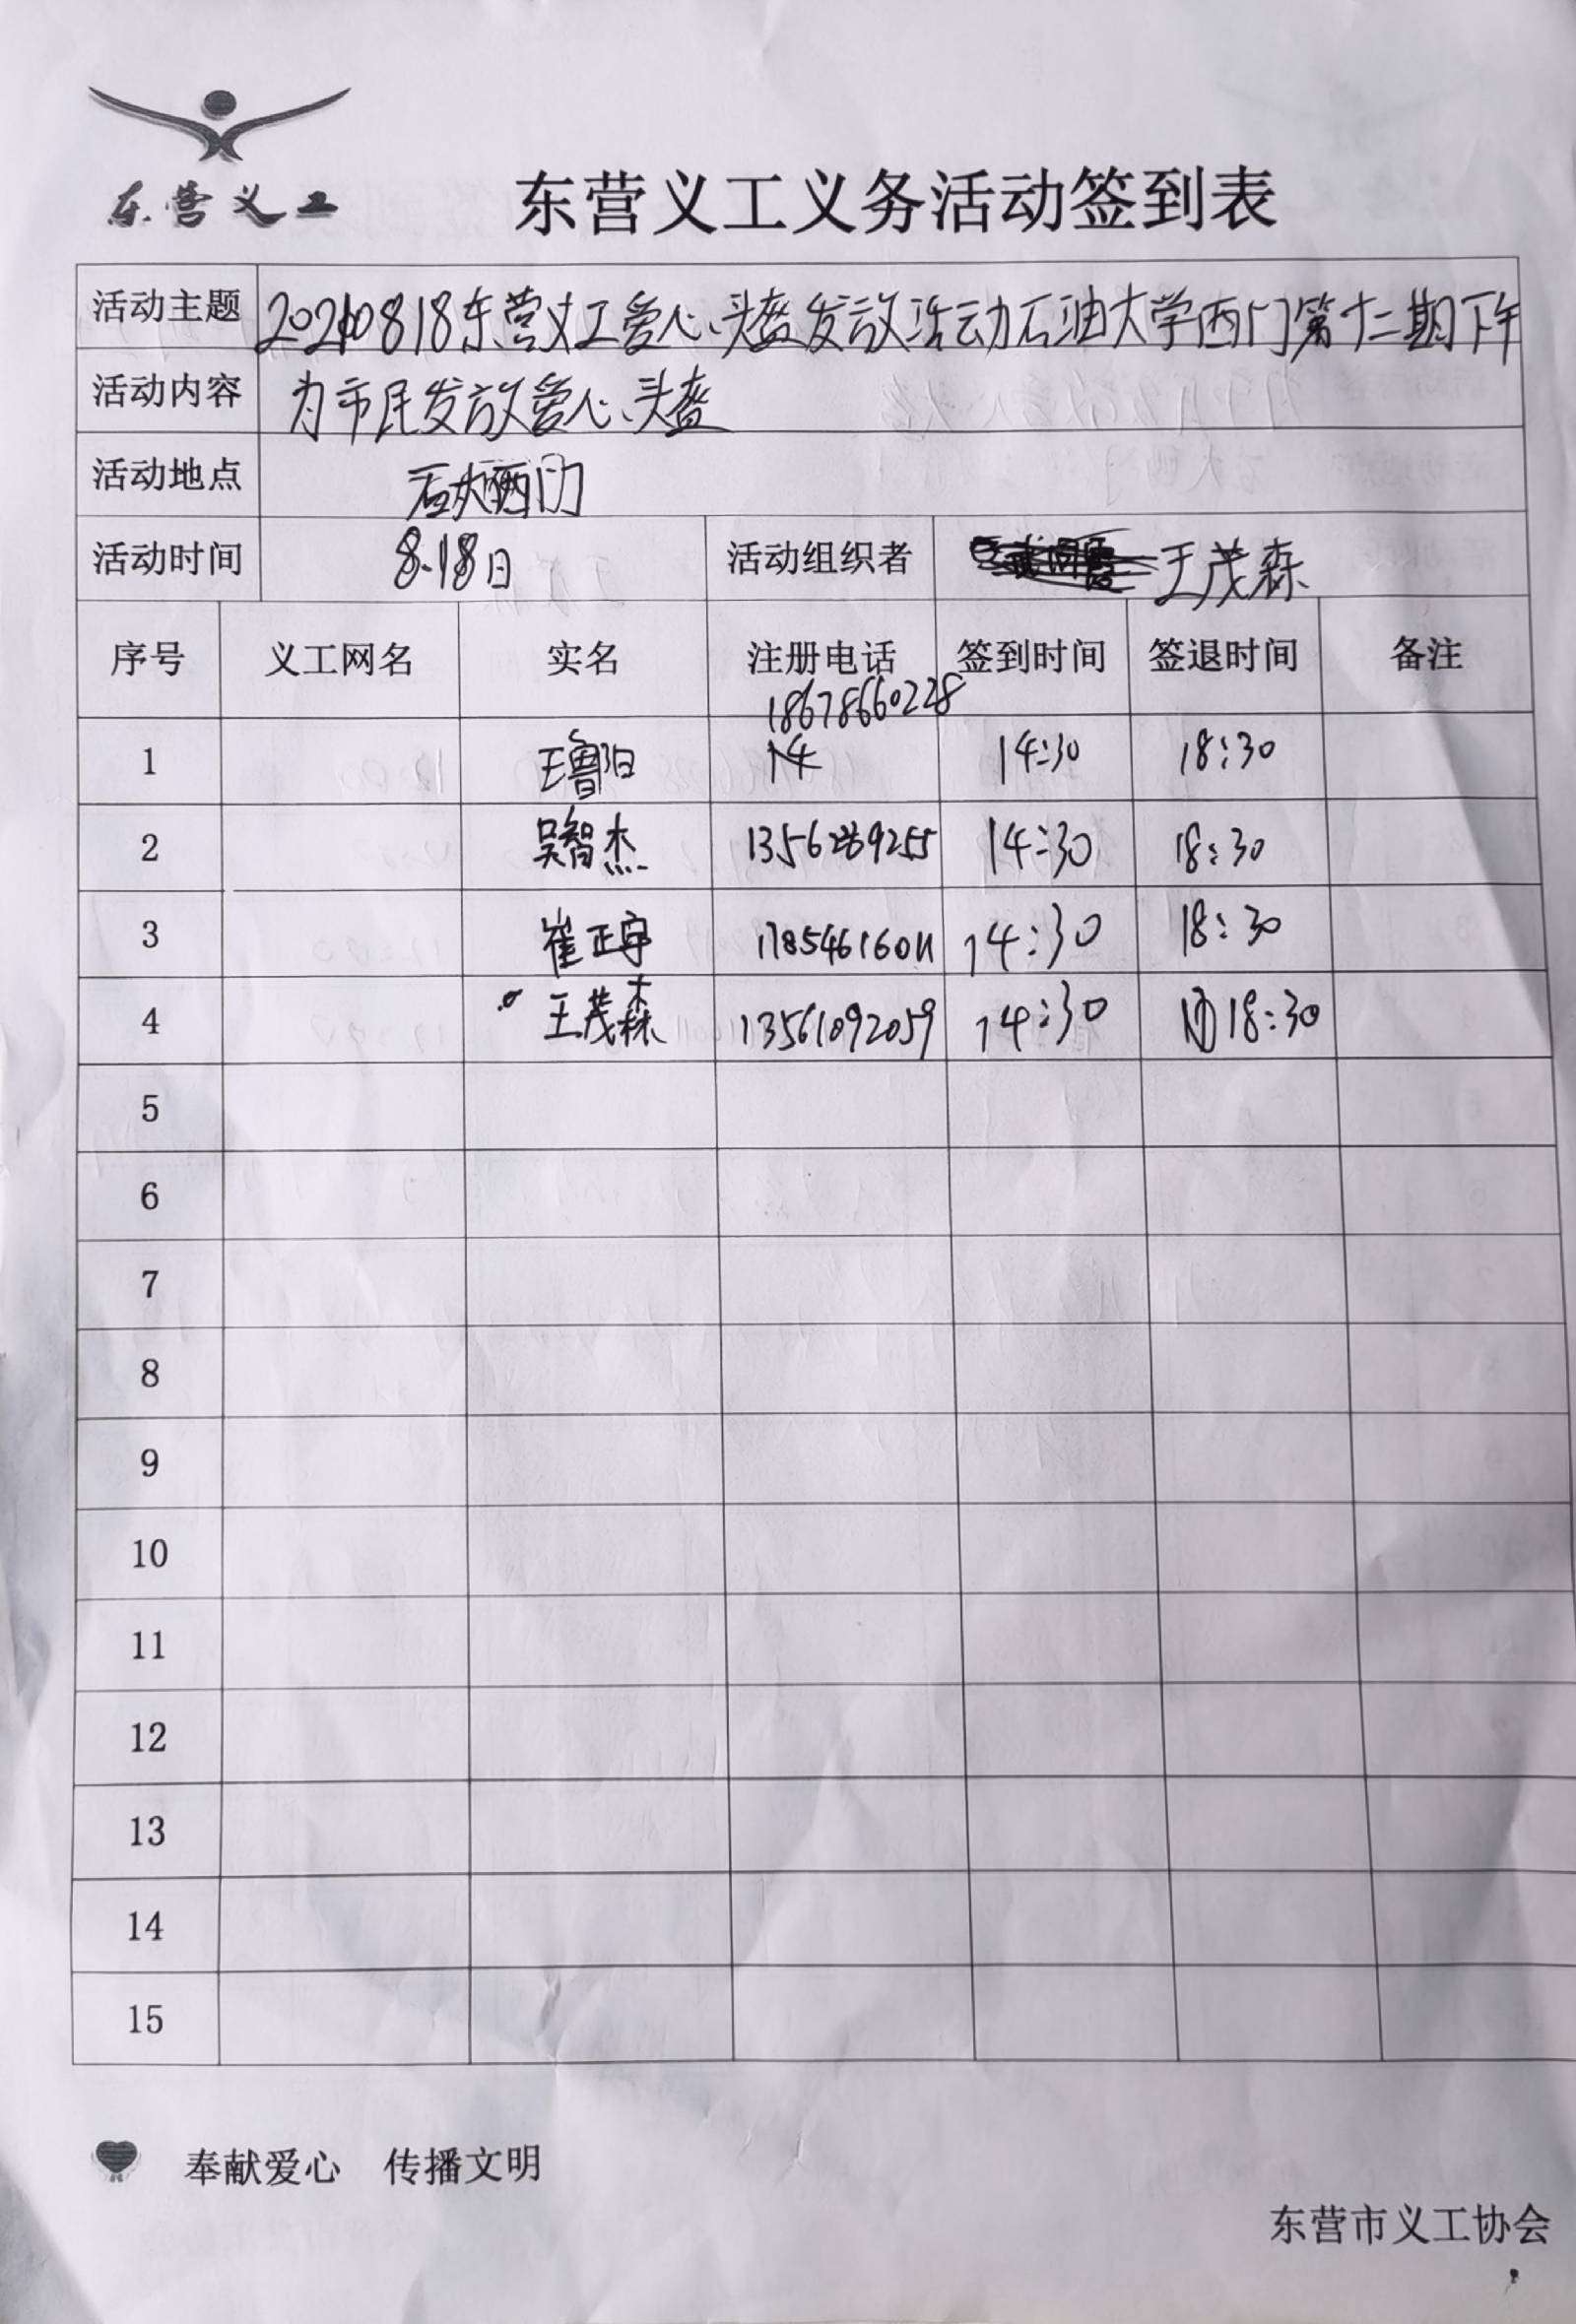 东营义工
东营义工义务活动签到表
活动主题 20210818东营义工爱心头盔发放活动石油大学西门第十二期下午
活动内容 为市民发放爱心头盔
活动地点 石大西门
活动时间 8.18日 活动组织者 王茂森
序号 义工网名 实名 注册电话 签到时间 签退时间 备注
18678660228
1 王鲁阳 14 14:30 18:30
2 吴智杰 14:30 18:30
3 崔正宇 17854616011 14:30 18:30
4 王茂森 13561092059 14:30 18:30
5
6
7
8
9
10
11
12
13
14
15
奉献爱心 传播文明
东营市义工协会